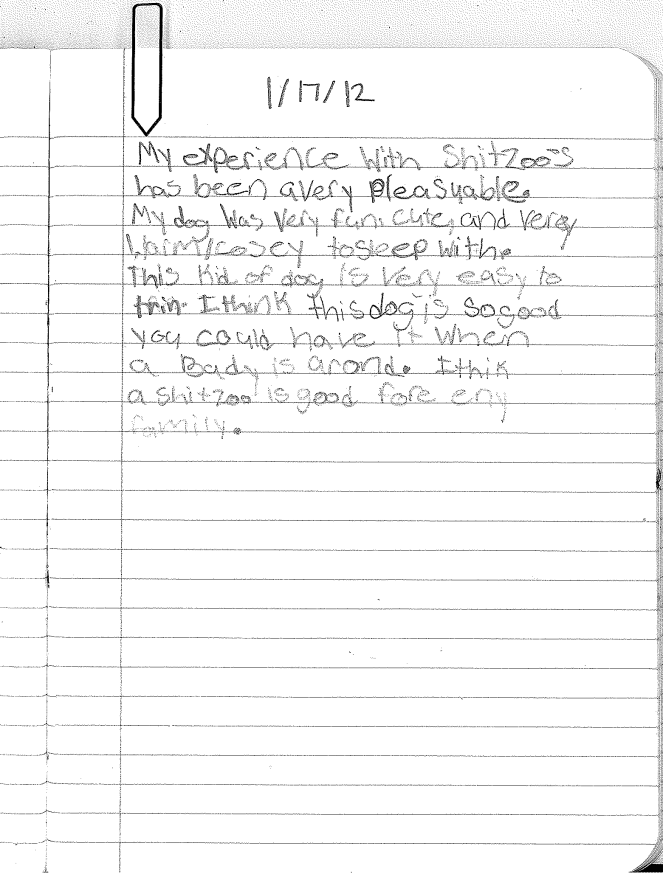 1/17/12
My experience With Shitzoo's
has been avery pleasuable.
My dog Was Very fun, cute, and very
Warm/cosey tosleep With.
This Kid of dog is Very easy to
trin. I think this dog is so good
you could have it When
a Bady is arond. I thik
a shitzoo is good fore eny
family.